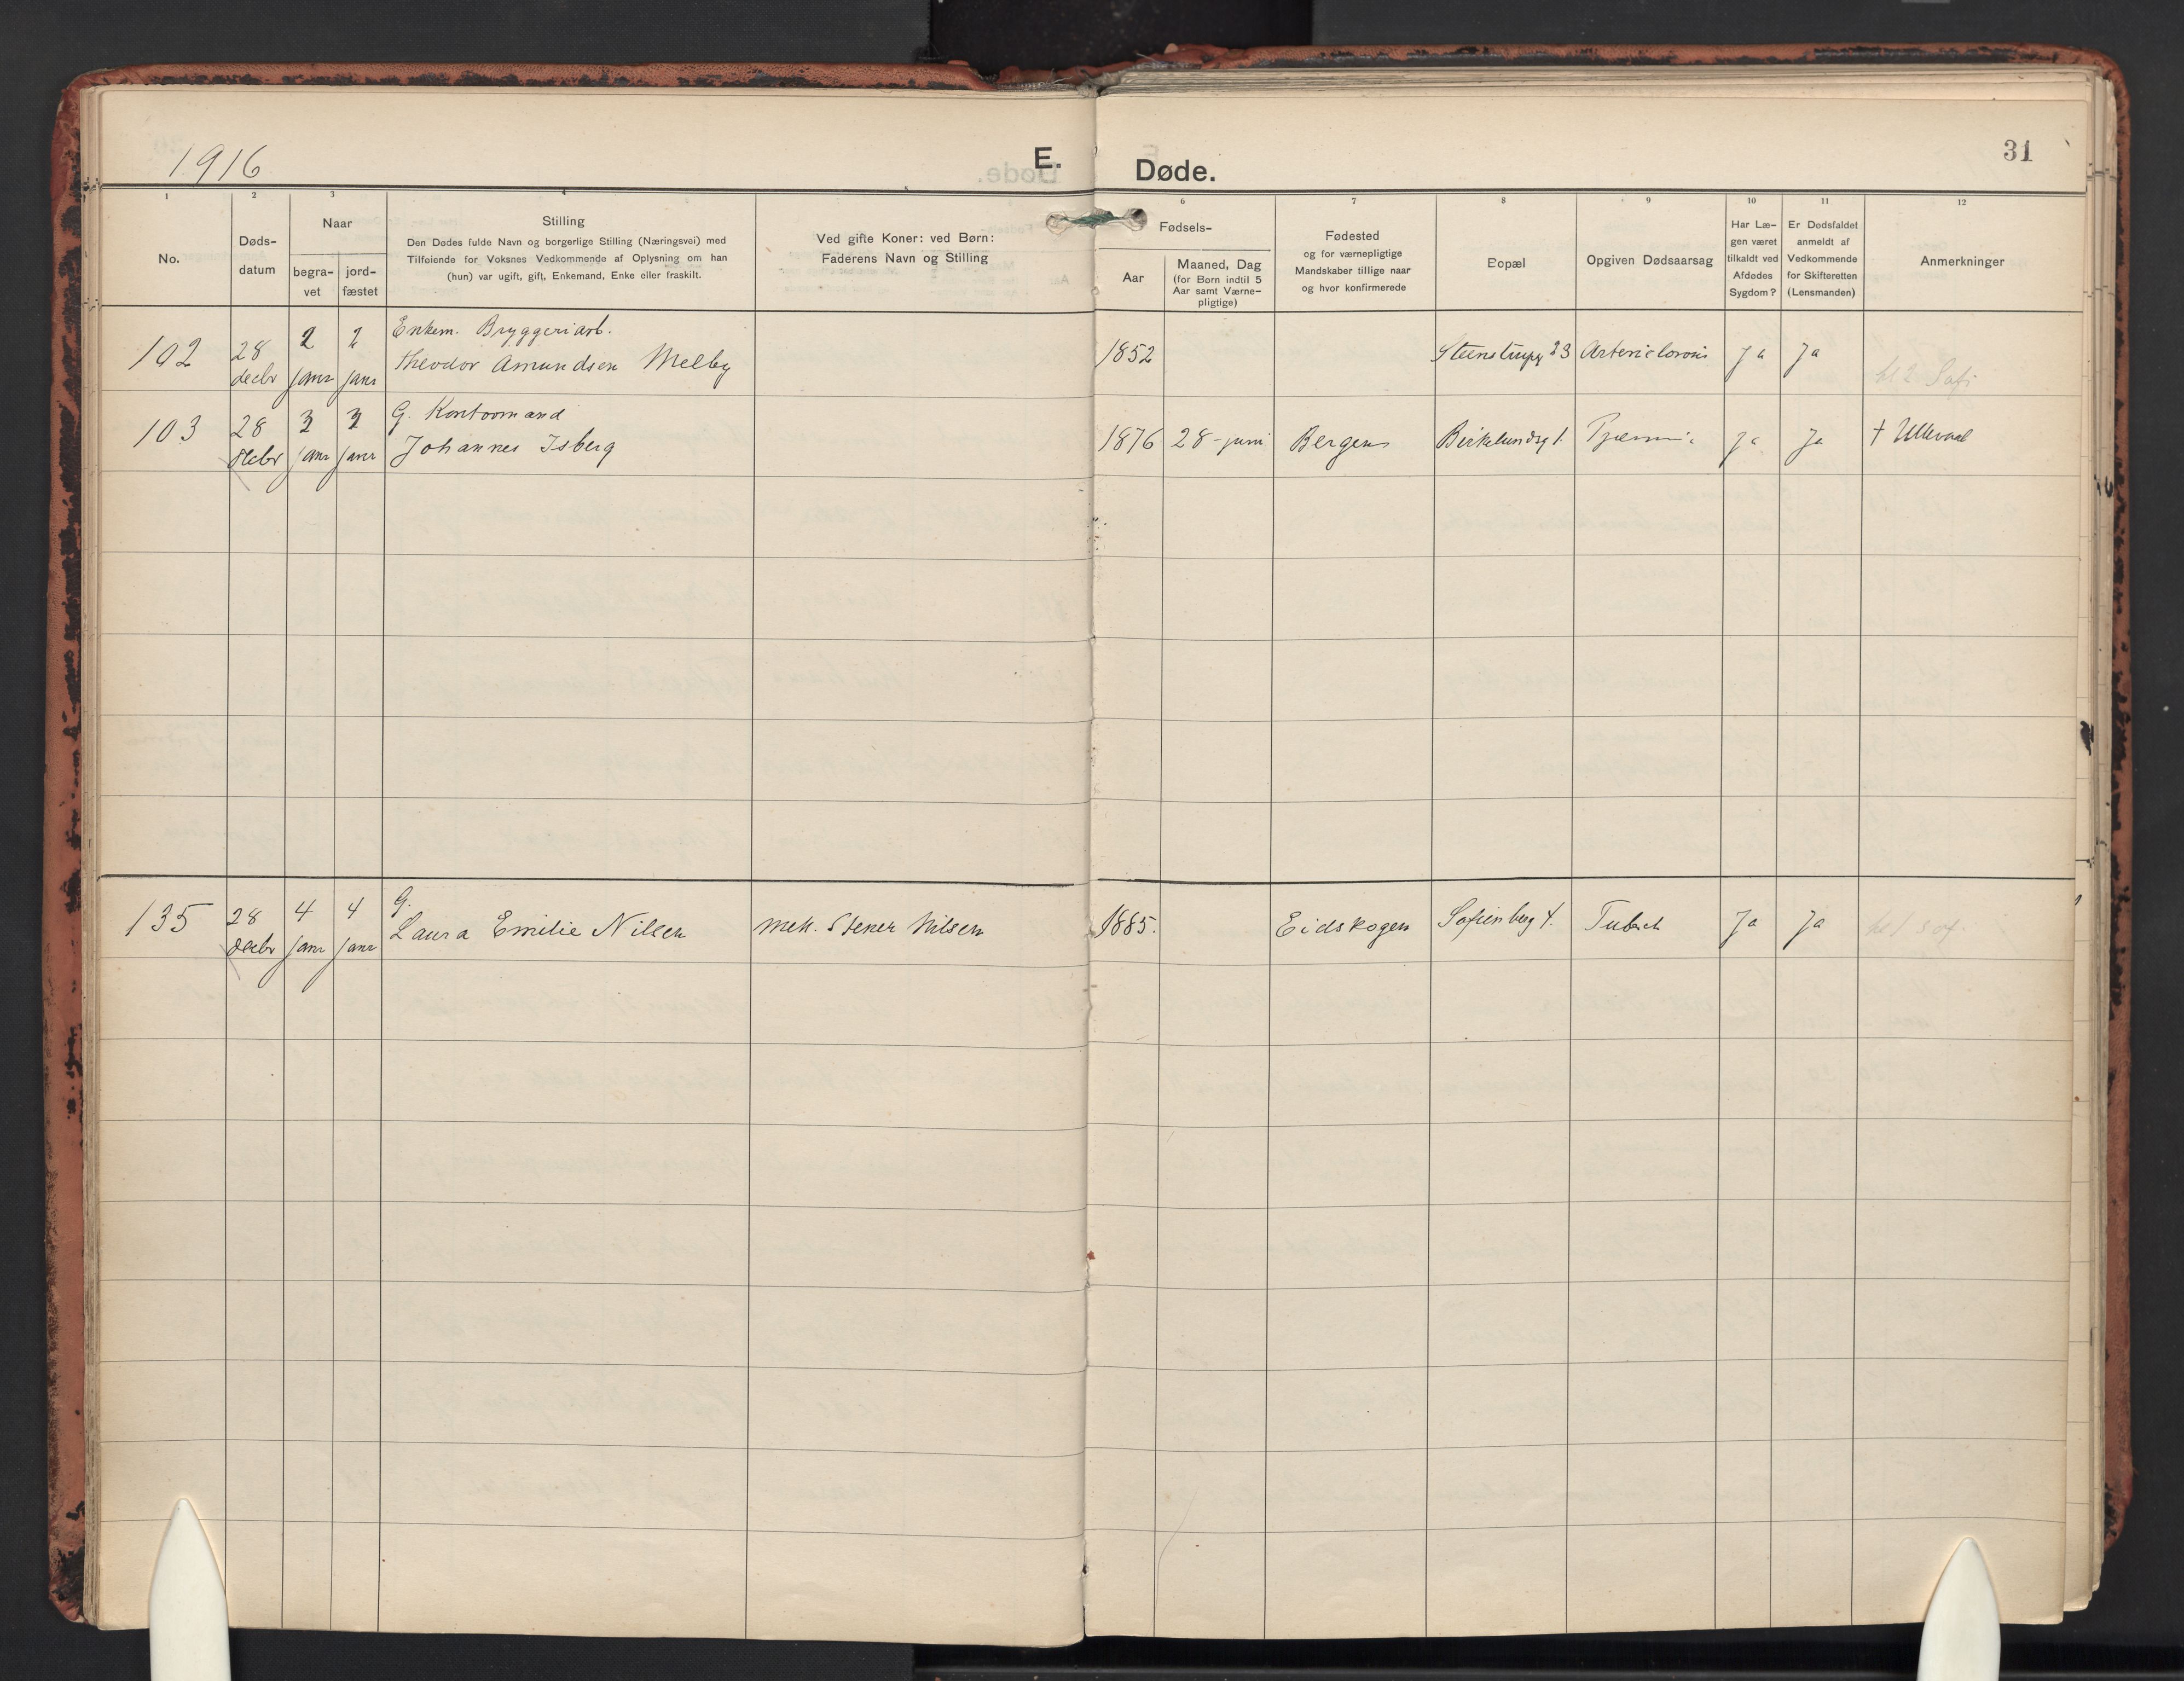 1916
E. Døde.
31
1 2 3 4 5 6 7 8 9 10 11 12
No.
Døds-
datum
Naar
begra-
vet
jord-
fæstet
Stilling
Den Dødes fulde Navn og borgerlige Stilling (Næringsvei) med
Tilføiende for Voksnes Vedkommende af Oplysning om han
(hun) var ugift, gift, Enkemand, Enke eller fraskilt.
Ved gifte Koner: ved Børn:
Faderens Navn og Stilling
Fødsels-
Aar
Maaned, Dag
(for Børn indtil 5
Aar samt Værne-
pligtige)
Fødested
og for værnepligtige
Mandskaber tillige naar
og hvor konfirmerede
Bopæl
Opgiven Dødsaarsag
Har Læ-
gen været
tilkaldt ved
Afdødes
Sygdom?
Er Dødsfaldet
anmeldt af
Vedkommende
for Skifteretten
(Lensmanden)
Anmerkninger
102
28
decbr
2
janr
2
janr
Enkem. Bryggeriarb.
Theodor Amundsen Melby
1852
Steenstrupg 23
Ja
Ja
103
28
decbr
3
janr
3
janr
G. Kontormand
Johannes Isberg
1876
28-juni
Bergen
Birkelundsg 1.
Ja
Ja
† Ullevaal
135
28
decbr
4
janr
4
janr
G.
Laura Emilie Nilsen
Mek. Stener Nilsen
1885.
Eidskogen
Sofienberg 4.
Ja
Ja